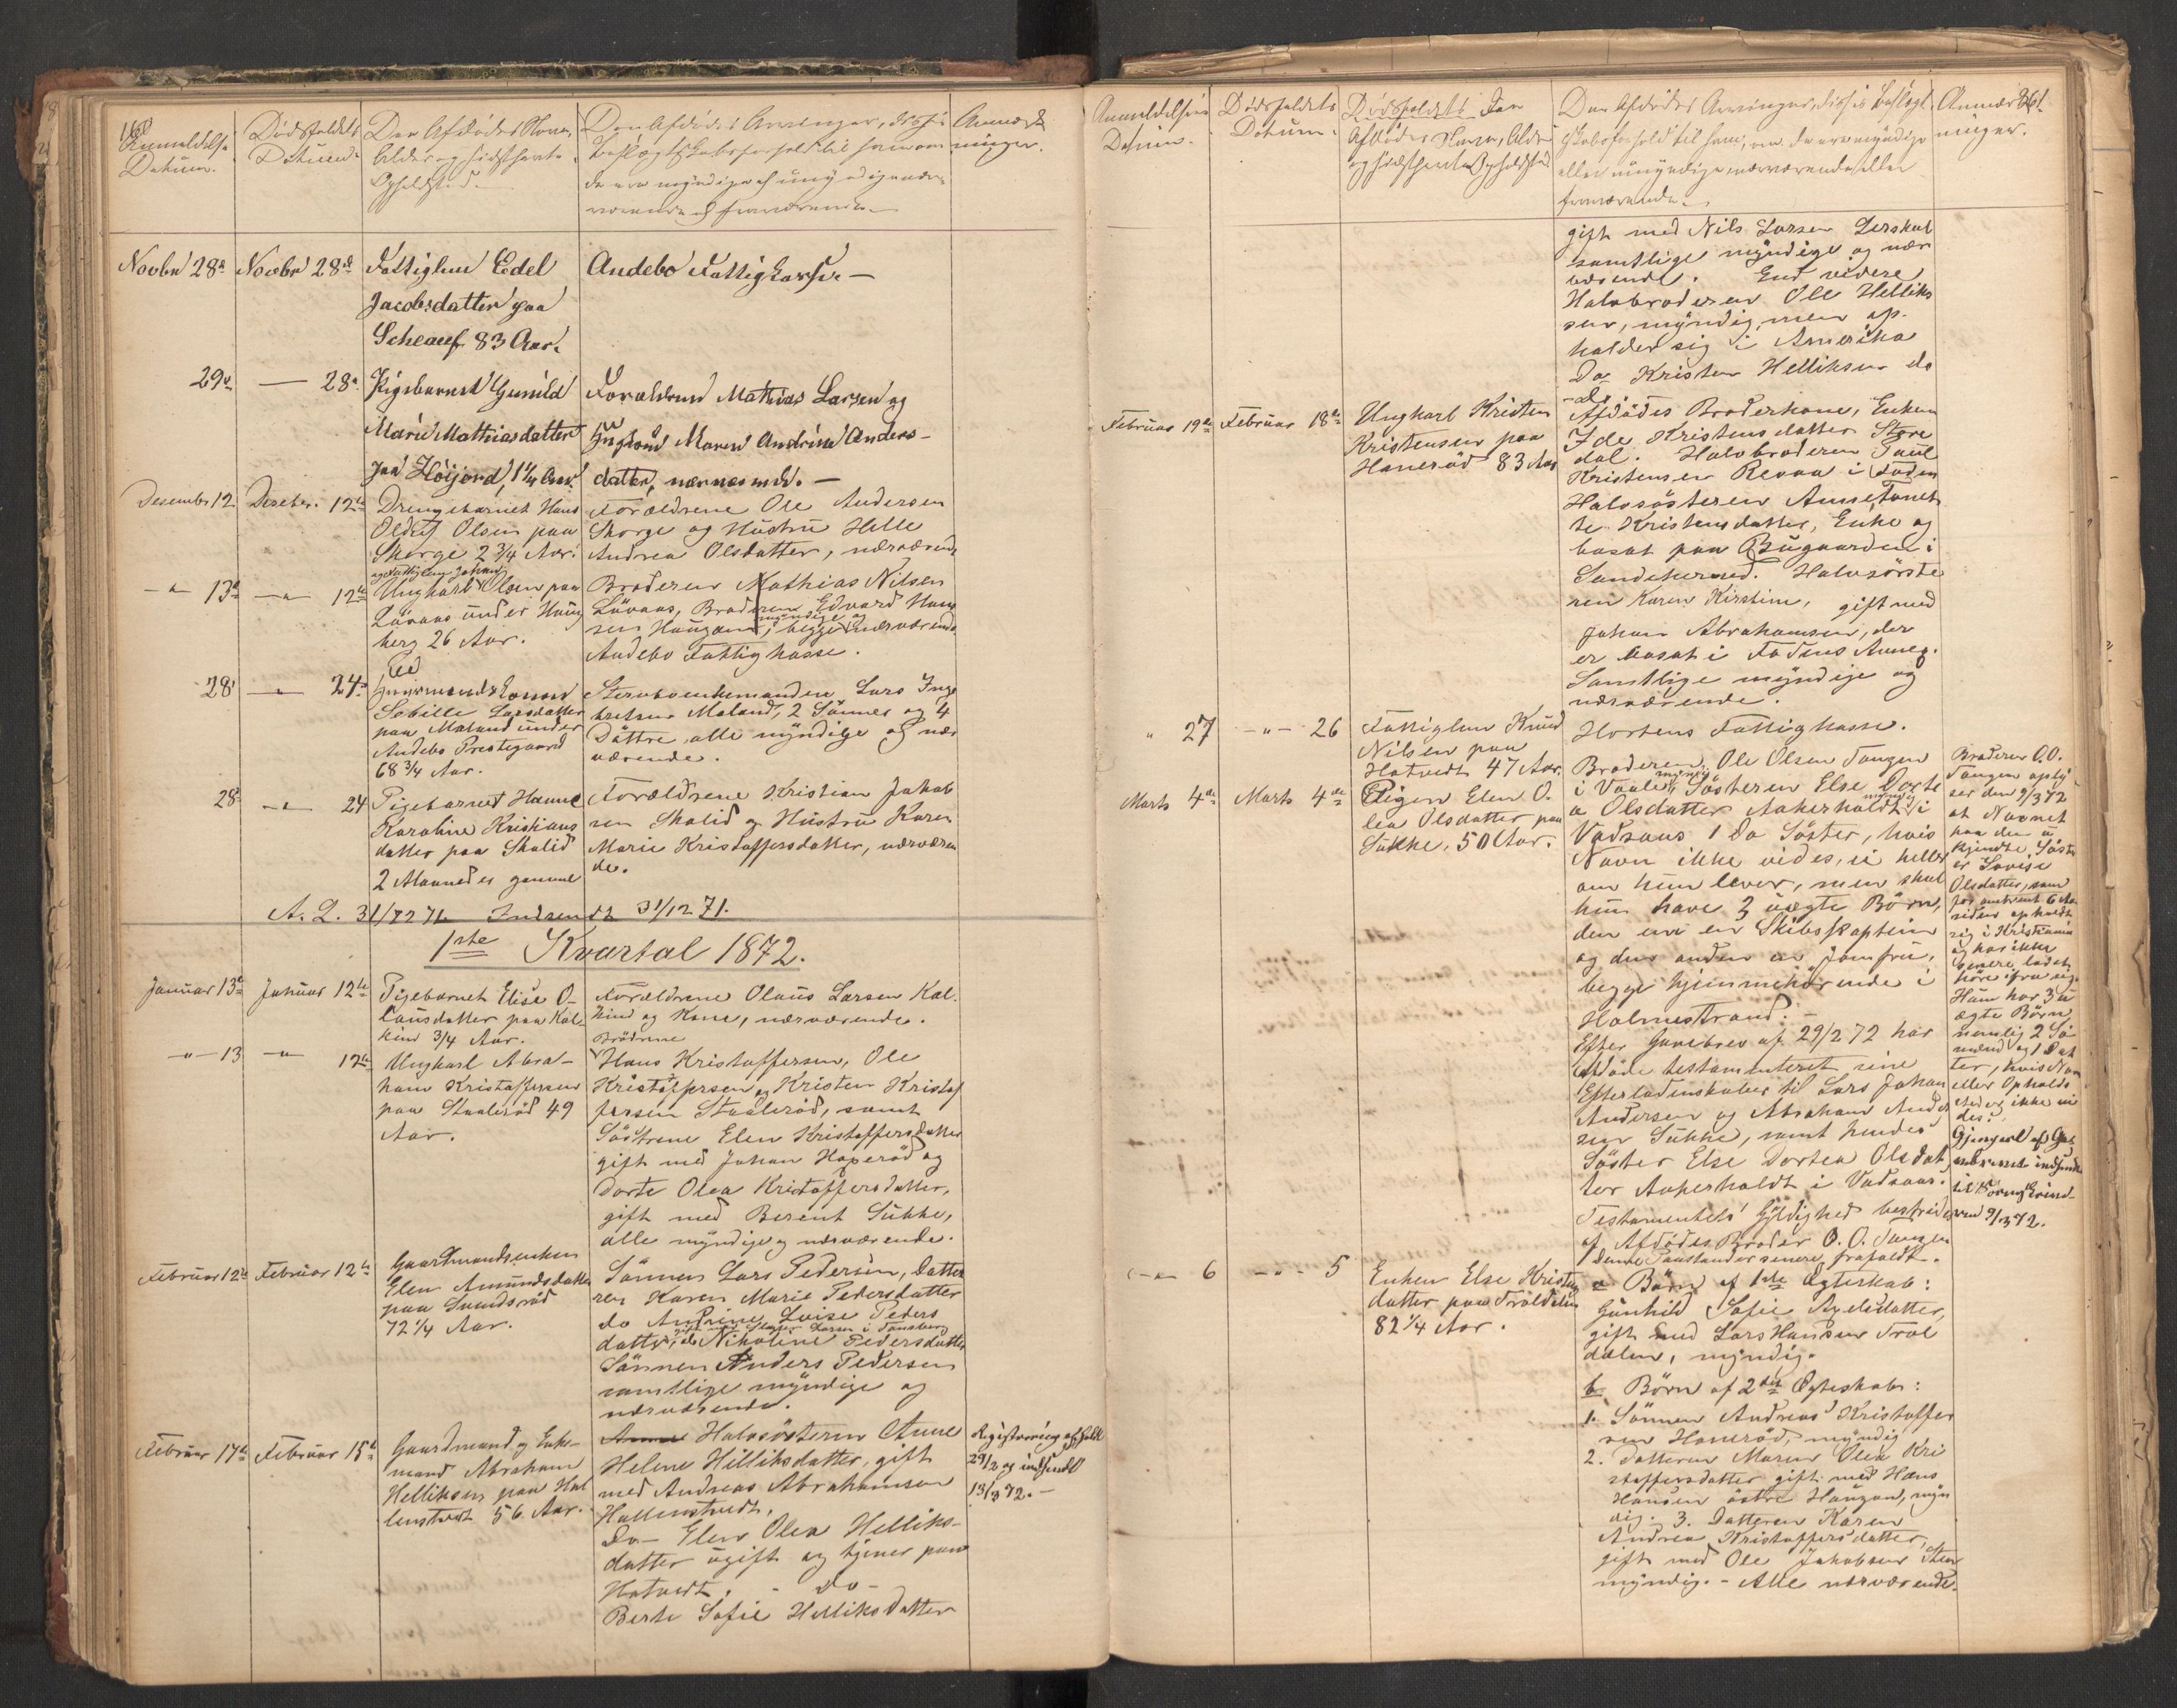 160
Anmeldelse
Datum.
Dødsfaldets
Datum.
Den Afdødes Navn,
Alder og sidst havte
Opholdsted.
Den Afdødes Arvinger, disses
Slægtskabsforhold til ham om
de ere myndige el. umyndige nær-
værende el. fraværende.
Anmærk
ninger.
Novbr 28de
Novbr 28de
Fattiglem Edel
Jacobsdatter paa
83 Aar.
Andebo Fattigkasse. —
29de
— 28de
Pigebarnet Gunild
Marie Mathiasdatter
paa Höijord, 1 1/4 Aar.
Forældrene Mathias Larsen og
Maren Andrine Anders-
datter, nærværende. —
Desember 12
Desebr. 12te
Drengebarnet Hans
Oluf Olsen paa
Skorge 2 3/4 Aar.
Forældrene Ole Andersen
Skorge og Hustru Helle
Andrea Olsdatter, nærværende
-"- 13de
-"- 12te
og Fattiglem Johan
Ungkarl Olsen paa
Lövaas under Haug
berg 26 Aar.
Broderen Mathias Nilsen
Lövaas, Broderen Edvard Han
sen Haugan, begge myndige og nærværende
Andebo Fattigkasse.
28
-"- 24de
Sebille Larsdatter
paa Moland under
Andebo Prestegaard
68 3/4 Aar.
Stervboenkemanden Lars Inge
bretsen Moland, 2 Sönner og 4
Döttre alle myndige og nær
værende.
28
-"- 24
Pigebarnet Hanne
Karoline Kristians
datter paa Skolid
2 Maaneder gammel
Forældrene Kristian Jakob
sen Skolid og Hustru Karen
Marie Kristoffersdatter, nærværen
de.
A. Q. 31/12 71 Indsendt 31/12 71.
1ste Kvartal 1872.
Januar 13de
Januar 12te
Pigebarnet Elise O-
lausdatter paa Kol-
kind 3/4 Aar.
Forældrene Olaus Larsen Kol-
kind og Kone, nærværende.
-"- 13
-"- 12te
Ungkarl Abra-
ham Kristoffersen
paa Staalerød 49
Aar.
Brödrene
Hans Kristoffersen, Ole
Kristoffersen og Kristen Kristof
fersen Staalerød, samt
Söstrene Elen Kristoffersdatter
gift med Johan Haperød og
Dorte Olea Kristoffersdatter,
gift med Berent Sukke,
alle myndige og nærværende.
Februar 12te
Februar 12te
Gaardmandsenken
Elen Amundsdatter
paa Svindsrød
72 1/4 Aar.
Sönnen Lars Pedersen, Datte
ren Karen Marie Pedersdatter
do Andrine Lovise Peders
datter, gift med Larsen i Tønsberg
do Nikoline Pedersdatter
Sönnen Anders Pedersen
samtlige myndige og
nærværende.
Februar 17de
Februar 15de
Gaardmand og Enke-
mand Abraham
Helliksen paa Hal
lenstvedt 56 Aar.
Halvsösteren Anne
Helene Helliksdatter, gift
med Andreas Abrahamsen
Hallenstvedt.
Do- Elen Olea Helliks-
datter ugift og tjener paa
Hotvedt. - Do-
Berte Sofie Helliksdatter
Registrering afholdt
29/2 og indsendt
13/3 72. —
Anmeldelsens
Datum.
Dødsfaldets
Datum.
Dødsfaldets Den
Afdødes Navn, Alder
og sidst havte Opholdsted
Den Afdødes Arvinger, disses Slægt
skabsforhold til ham, om de ere myndige
eller umyndige nærværende eller
fraværende.
Anmærk
ninger.
161.
gift med Nils Larsen Lerskal
samtlige myndige og nær
værende. End videre
Halvbroderen Ole Hellik
sen, myndig, men op-
holder sig i Amerika
Do Kristen Helliksen do
-do.
Februar 19de
Februar 18de
Ungkarl Kristen
Kristensen paa
Hanerød 83 Aar
Afdødes Broderkone, Enken
Ide Kristensdatter Store
dal. Halvbroderen Paul
Kristensen Revaa i Foden
Halvsösteren Anne Tonet
te Kristensdatter, Enke og
bosat paa Bugaarden i
Sandeherred. Halvsöste
ren Karen Kirstine, gift med
Johan Abrahamsen, der
er bosat i Fodens Annex.
Samtlige myndige og
nærværende.
" 27
-"- 26
Fattiglem Knud
Nilsen paa
Hotvedt 47 Aar.
Hortens Fattigkasse.
Marts 4de
Marts 4de
Pigen Elen O-
lea Olsdatter paa
Sukke, 50 Aar.
Broderen Ole Olsen Tangen
i Vaale, myndig Sösteren Else Dorte
a Olsdatter Aakerholdt, myndig i
Vadsaas 1 Do Söster, hvis
Navn ikke vides, ei heller
om hun lever, men skal
hun have 3 uægte Börn,
den ene en Skibskaptein
og den anden en Jomfru,
begge hjemmehörende i
Holmestrand. -
Efter Gavebrev af 29/2 72 har
Afdøde testamenteret sine
Efterladenskaber til Lars Johan
Andersen og Abraham Ander
sen Sukke, samt hendes
Söster Else Dortea Olsdat
ter Aakerholdt i Vadsaas.
Testamentets Gyldighed bestrides
af Afdødes Broder O. O. Tangen
Denne Paastand er senere frafaldt.
Broderen O. O.
Tangen oply
ser den 9/3 72
at Navnet
paa den u
kjendte Söster
er Lovise
Olsdatter, som
for omtrent 6 Aar
siden opholdt
sig i Kristiania
og har ikke
senere ladet
höre ifra sig.
Hun har 3 u
ægte Börn
nemlig 2 Sö
nner og 1 Dat
ter, hvis Navn
eller Opholds
sted ikke vi
des.
Gjenpart af Ga
vebrevet indsendt
til Sorenskriver
en 9/3 72.
-"- 6
-"- 5
Enken Else Kristens
datter paa Troldalen
82 1/4 Aar.
a Börn af 1ste Ægteskab:
Gunhild Sofie Axelsdatter,
gift med Lars Hansen Trol
dalen, myndig.
b Börn af 2det Ægteskab:
1. Sönnen Andreas Kristoffer
sen Hanerød, myndig
2. Datteren Maren Olea Kri
stoffersdatter gift med Hans
Hansen östre Haugan, myn
dig. 3. Datteren Karen
Andrea Kristoffersdatter,
gift med Ole Jakobsen
myndig. - Alle nærværende.